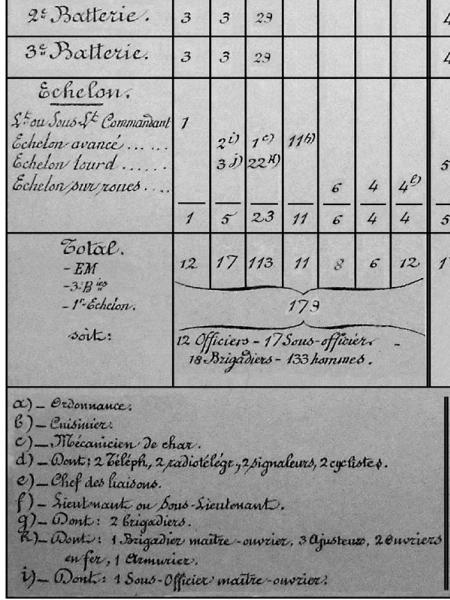 2e Batterie. 3 3 29 4
3e Batterie. 3 3 29 4
Echelon.
Lt ou Sous-Lt Commandant 1
Echelon avancé ...... 2i) 1c) 11h)
Echelon lourd ...... 3j) 22k) 5
Echelon sur roues .... 6 4 4l)
1 5 23 11 6 4 4 5
Total. 12 17 113 11 8 6 12 1
- EM
- 3 Bies
- 1er Echelon.
179
soit: 12 Officiers - 17 Sous-officier. -
18 Brigadiers - 133 hommes.
a) - Ordonnance.
b) - Cuisinier.
c) - Mécanicien de char.
d) - Dont: 2 Téléph, 2 radiotélégr, 2 signaleurs, 2 cyclistes.
e) - Chef des liaisons.
f) - Lieutenant ou Sous-Lieutenant.
g) - Dont: 2 brigadiers.
h) - Dont: 1 Brigadier maître-ouvrier, 3 Ajusteux, 2 ouvriers
en fer, 1 Armurier.
i) - Dont: 1 Sous-Officier maître-ouvrier.